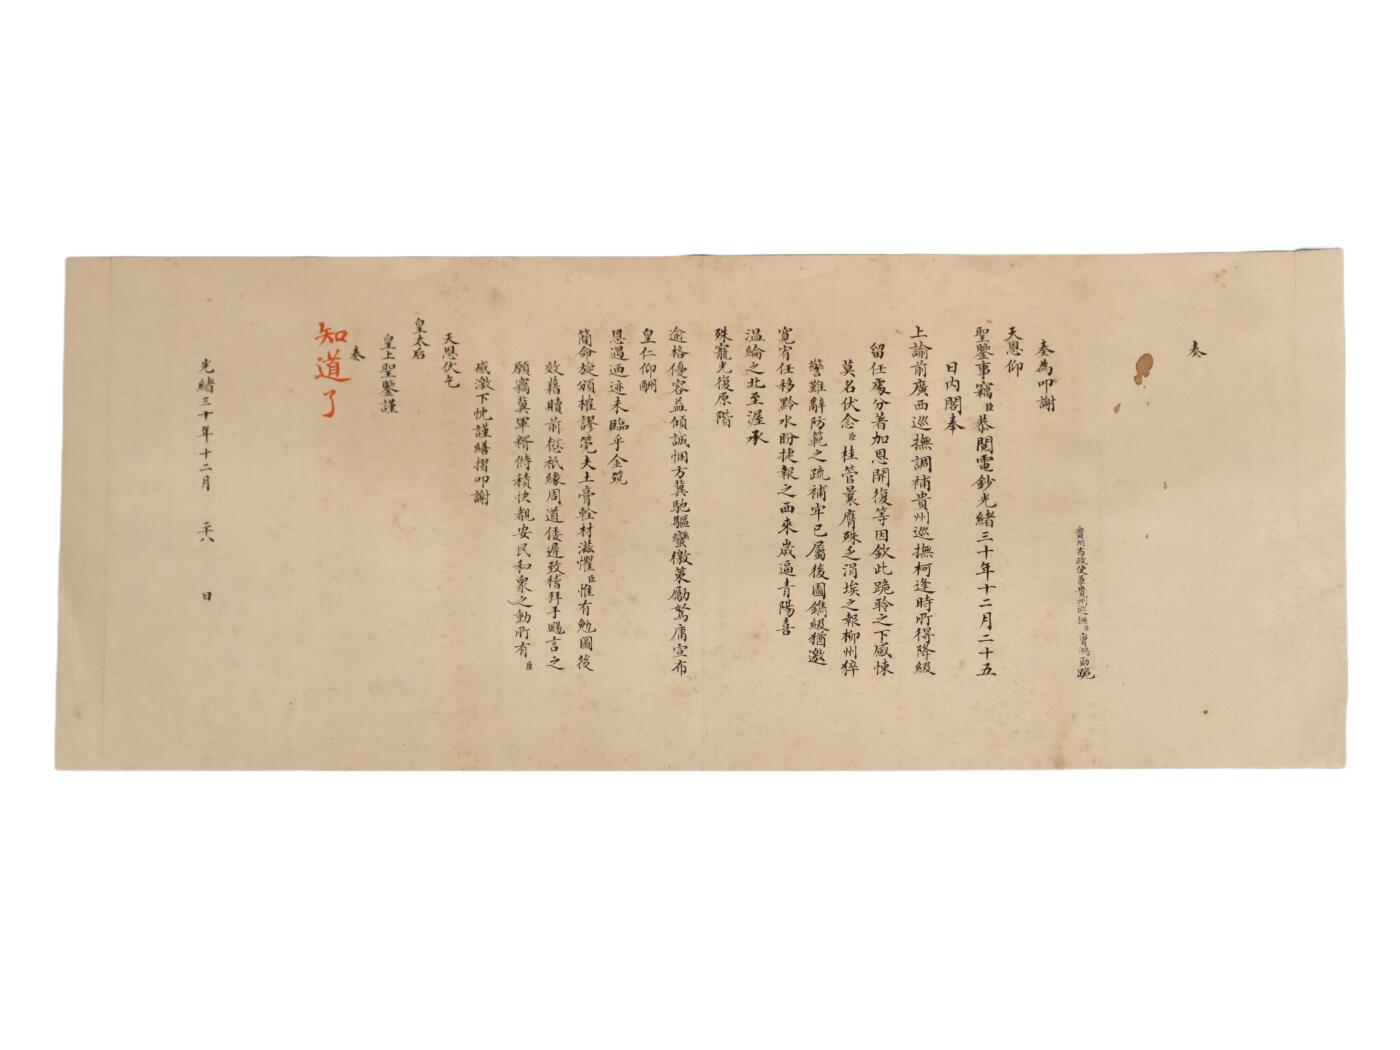 奏
貴州布政使兼貴州巡撫臣曹鴻勛跪
奏為叩謝
天恩仰
聖鑒事竊臣恭閱電鈔光緒三十年十二月二十五
日內閣奉
上諭前廣西巡撫調補貴州巡撫柯逢時所得降級
留任處分著加恩開復等因欽此跪聆之下感悚
莫名伏念臣桂管曩膺殊乏涓埃之報柳州猝
警難辭防範之疏補牢已屬後圖鐫級猶邀
寬宥任移黔水盼捷報之西來歲逼青陽喜
溫綸之北至渥承
殊寵光復原階
逾格優容益傾誠悃方冀馳驅蠻徼策勵駑庸宣布
皇仁仰酬
恩遇迺迹未臨乎金筑
簡命旋頒榷謬筦夫土膏輇材滋懼臣惟有勉圖後
效藉贖前愆祇緣周道倭遲致稽拜手颺言之
願竊冀軍糈偫積快覩安民和衆之勳所有臣
感激下忱謹繕摺叩謝
天恩伏乞
皇太后
皇上聖鑒謹
奏
知道了
光緒三十年十二月 二十八 日